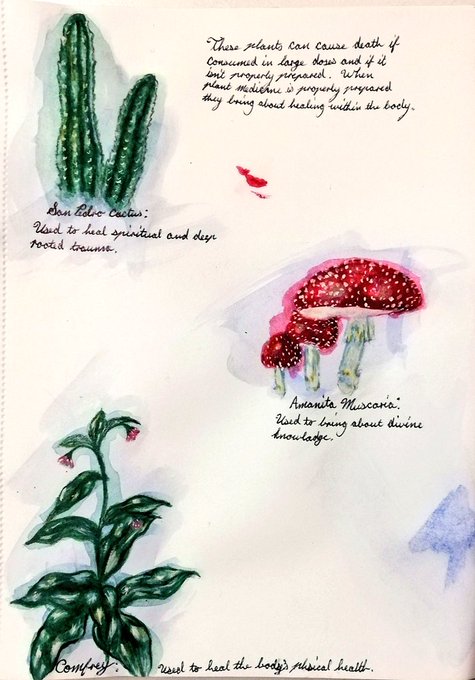 These plants can cause death if
consumed in large doses and if it
isn't properly prepared. When
plant medicine is properly prepared
they bring about healing within the body.
San Pedro Cactus:
Used to heal spiritual and deep
rooted trauma.
Amanita Muscaria:
Used to bring about divine
knowladge.
Comfrey:
Used to heal the body's phsical health.